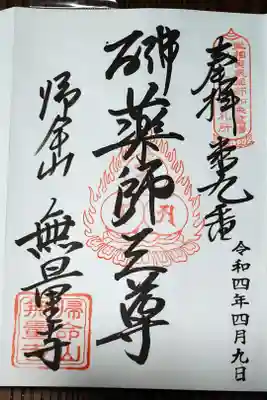 奉拝 第九番
令和四年四月九日
薬師三尊
帰命山
無量寺
帰命山
無量寺